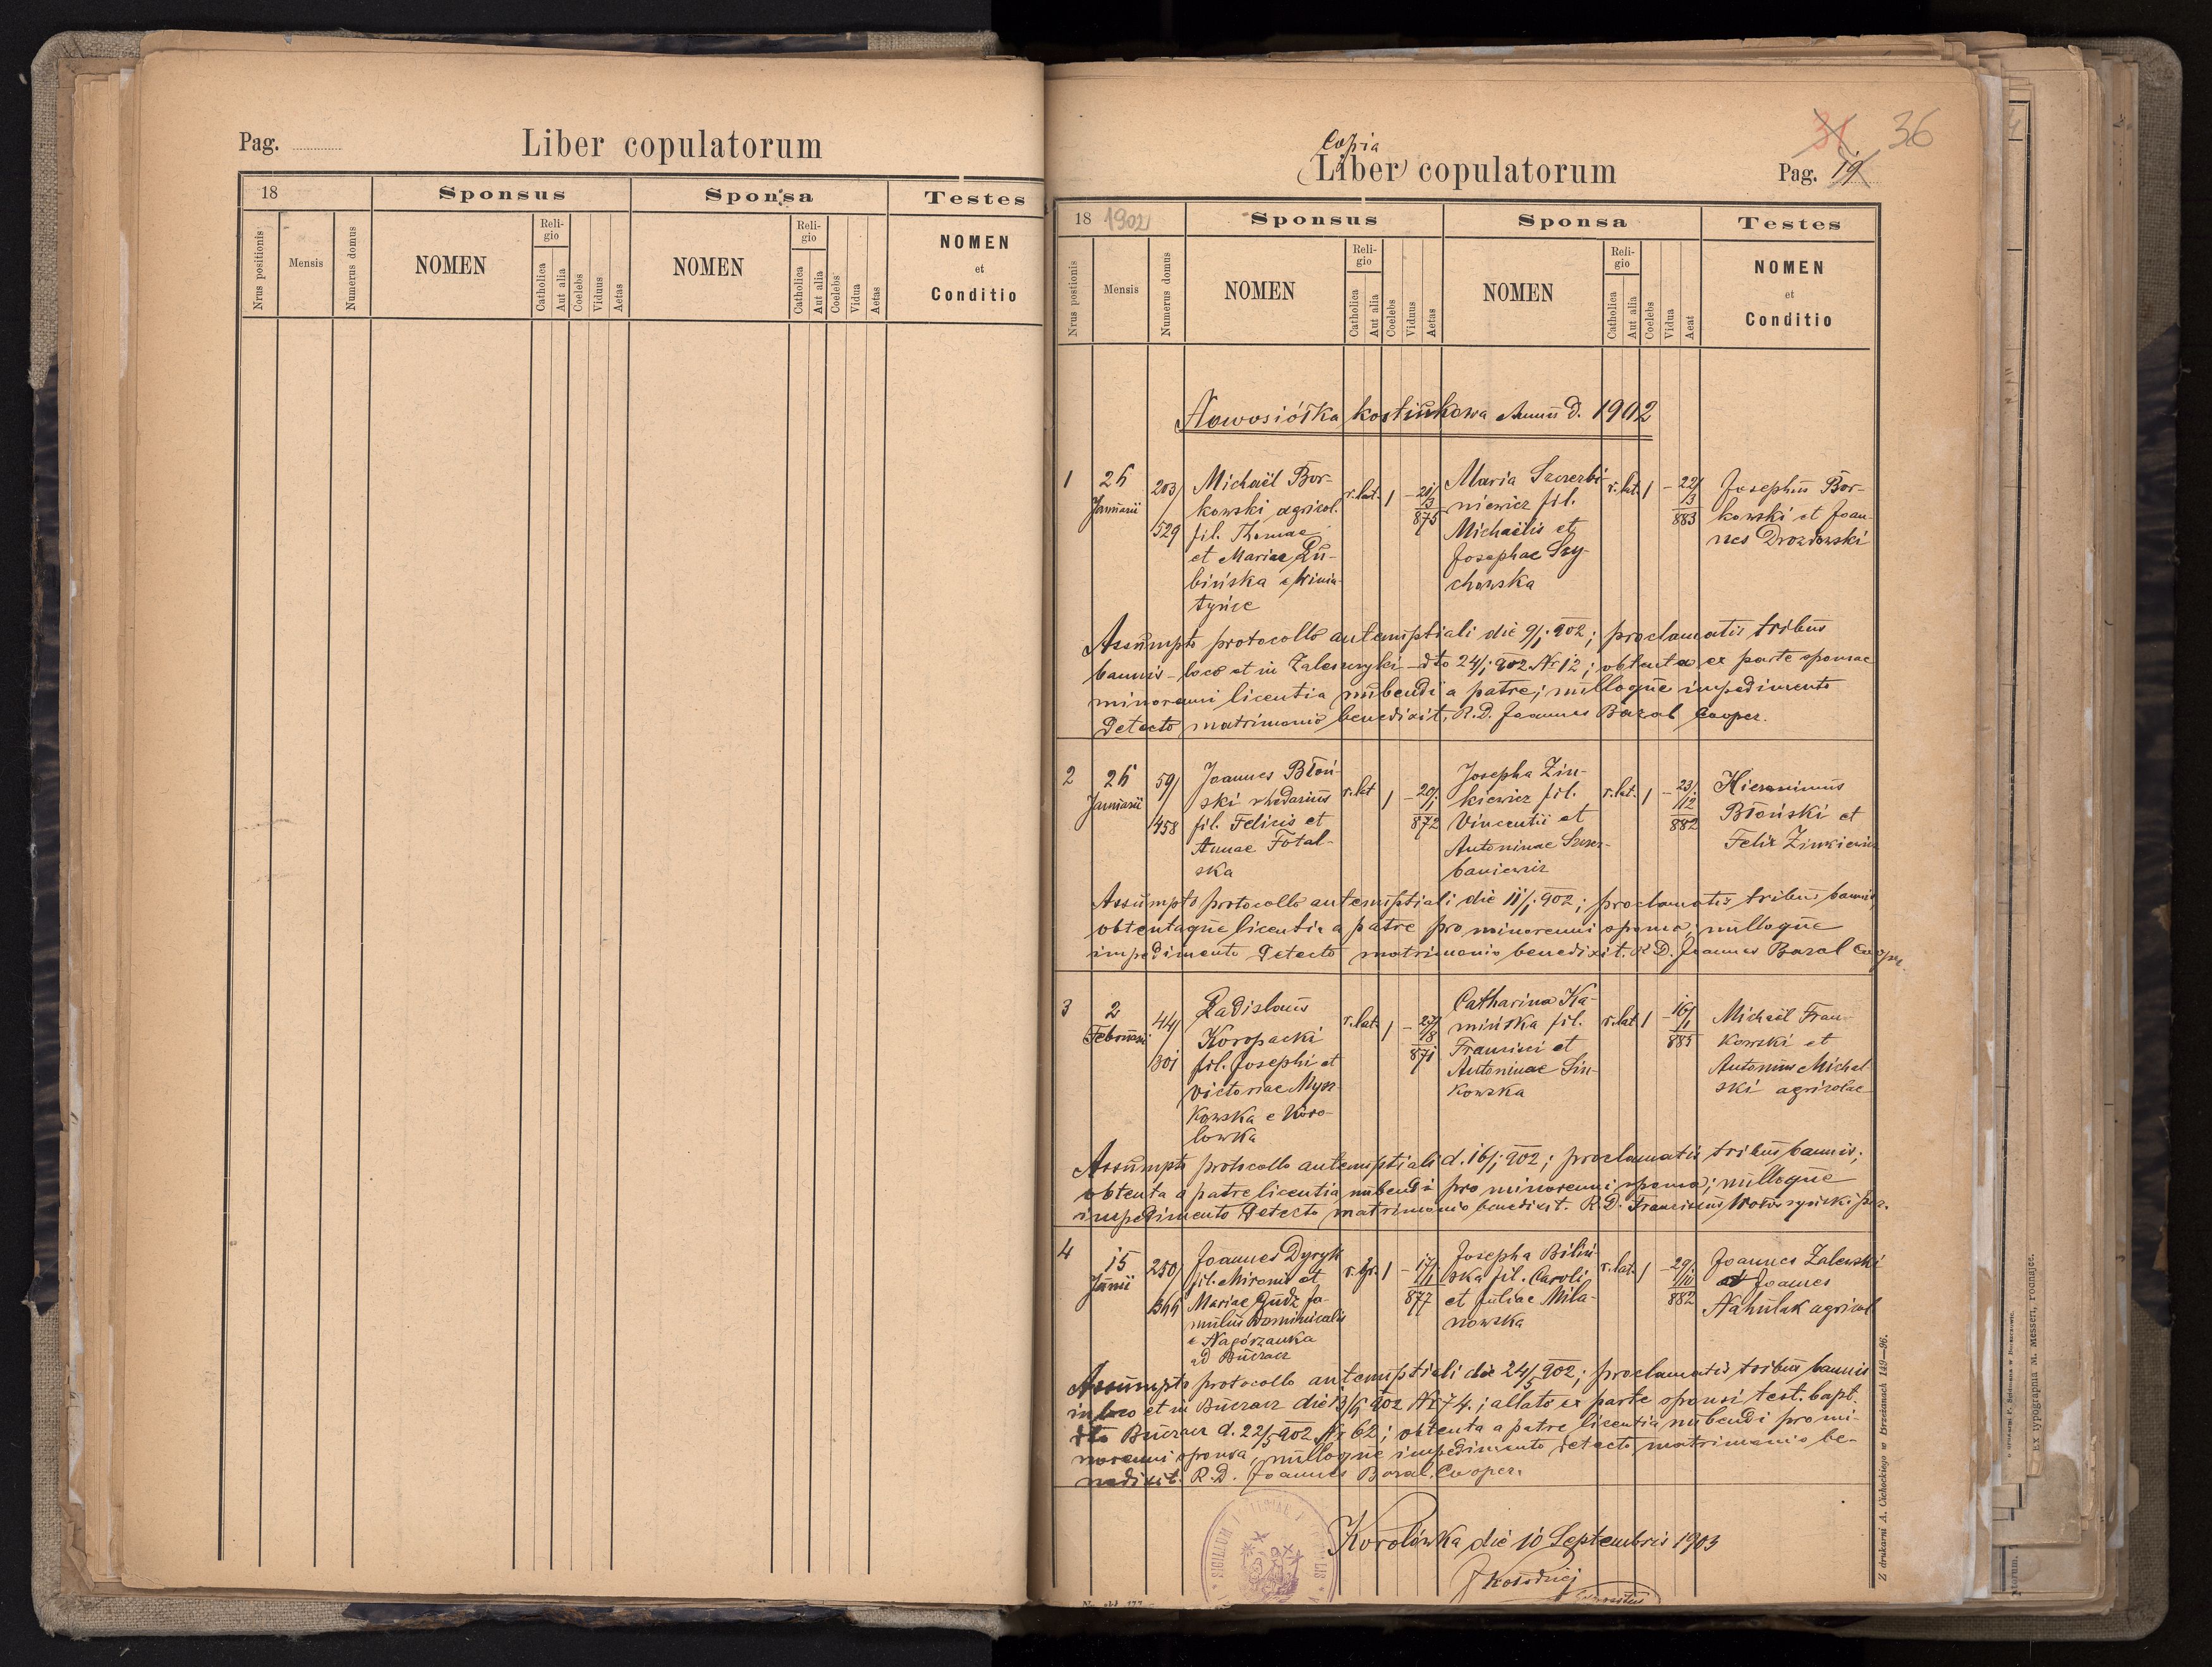 Pag.
Liber copulatorum
18
Sponsus
Sponsa
Testes
Nrus positionis
Mensis
Numerus domus
NOMEN
Reli-
gio
Catholica
Aut alia
Coelebs
Viduus
Aetas
NOMEN
Reli-
gio
Catholica
Aut alia
Coelebs
Vidua
Aetas
NOMEN
et
Conditio
Copia
(Liber) copulatorum
Pag. 19
31
36
18 1902
Sponsus
Sponsa
Testes
Nrus postionis
Mensis
Numerus domus
NOMEN
Reli-
gio
Catholica
Aut alia
Coelebs
Viduus
Aetas
NOMEN
Reli-
gio
Catholica
Aut alia
Coelebs
Vidua
Aeat
NOMEN
et
Conditio
Nowosiółka kostiukowa Anni D. 1902
1
26
Januarii
203/
529
Michaël Bor-
kowski agricol.
fil. Thomae
et Mariae Lu-
bińska e Winia-
tyńce
r. lat.
1
-
21/
3
875
Maria Szczerba-
niewicz fil.
Michaëlis et
Josephae Szy-
chowska
r. lat.
1
-
22/
3
883
Josephus Bor-
kowski et Joan-
nes Drozdowski
Assumpto protocollo antenuptiali die 9/1 902; proclamatis tribus
bannis - loco et in Zaleszczyki - dto 24/1 902 Nr 12; obtenta ex parte sponsae
minorenni licentia nubendi a patre; nulloque impedimento
detecto matrimonio benedixit. R. D. Joannes Baral Cooper.
2
26
Januarii
59/
458
Joannes Błoń-
ski rhedarius
fil. Felicis et
Annae Fotal-
ska
r. lat
1
-
20/
1
872
Josepha Zin-
kiewicz fil.
Vincentii et
Antoninae Szczer-
baniewicz
r. lat.
1
-
23/
12
882
Hieronimus
Błoński et
Felix Zinkiewicz
Assumpto protocollo antenuptiali die 11/1 902; proclamatis tribus bannis,
obtentaque licentia a patre pro minorenni sponsa; nulloque
impedimento detecto matrimonio benedixit. R. D. Joannes Baral Cooper.
3
2
Februarii
44/
301
Ladislaus
Koropacki
fil. Josephi et
Victoriae Mysz-
kowska e Koro-
lowka
r. lat.
1
-
27/
8
871
Catharina Ka-
mińska fil.
Francisci et
Antoninae Sin-
kowska
r. lat
1
-
16/
1
885
Michaël Fran-
kowski et
Antonius Michal-
ski agricolae
Assumpto protocollo antenuptiali d. 16/1 902; proclamatis tribus bannis;
obtenta a patre licentia nubendi pro minorenni sponsa; nulloque
impedimento detecto matrimonio benedixit. R. D. Franciscus
4
15
Junii
250/
Joannes Dyryk
fil. Mironis et
Mariae Gudz fa-
mulus dominicalis
e Nagórzanka
ad Buczacz
r. gr.
1
-
17/
1
877
Josepha Biliń-
ska fil. Caroli
et Juliae Mila-
nowska
r. lat.
1
-
29/
10
882
Joannes Zalewski
et Joannes
Nahulak agricol
Assumpto protocollo antenuptiali die 24/5 902; proclamatis tribus bannis
in loco et in Buczacz die 13/6 902 Nr 74.; allato ex parte sponsi test. bapt.
dto Buczacz d. 22/5 902 Nr 62; obtenta a patre licentia nubendi pro mi-
norenni sponsa, nulloque impedimento detecto matrimonio be-
nedixit. R. D. Joannes Baral, Cooper.
Korolówka die 10 Septembris 1903
SIGILLUM
Z drukarni A. Cichockiego w Brzeżanach 149—96.
Ex typographia M. Messeri, roonajec.